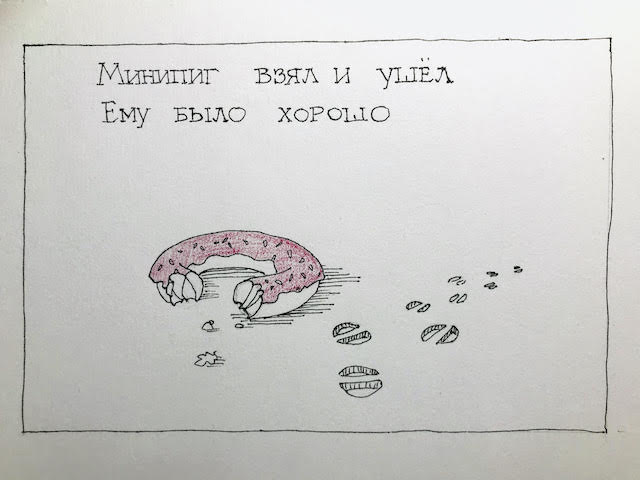 Минипиг взял и ушёл
Ему было хорошо